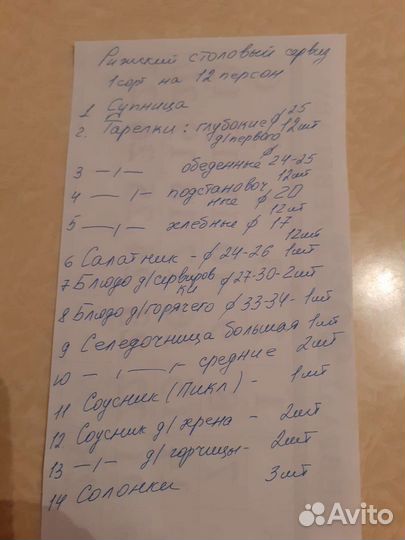 Рижский столовый сервиз
1 сорт на 12 персон
1 Супница
2. Тарелки: глубокие ø 25
д/первого 12 шт
3 —ı— обеденные ø 24-25
12 шт
4 —ı— подстановоч
ные ø 20
12 шт
5 —ı— хлебные ø 17
12 шт
6 Салатник - ø 24-26 1 шт
7 Блюдо д/сервиров
ки ø 27-30 - 2 шт
8 Блюдо д/горячего ø 33-34 - 1 шт
9 Селедочница большая 1 шт
10 —ı— —ı— средние 2 шт
11 Соусник (Пикл) - 1 шт
12 Соусник д/хрена - 2 шт
13 —ı— д/горчицы - 2 шт
14 Солонки 3 шт
Avito